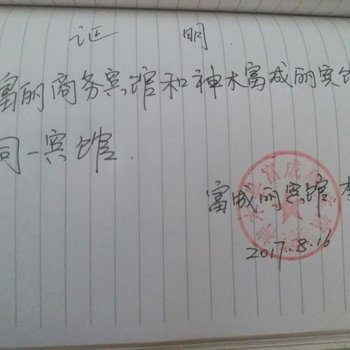 证 明
富丽商务宾馆和神木富成丽宾馆
同一宾馆.
富成丽宾馆
2017.8.16